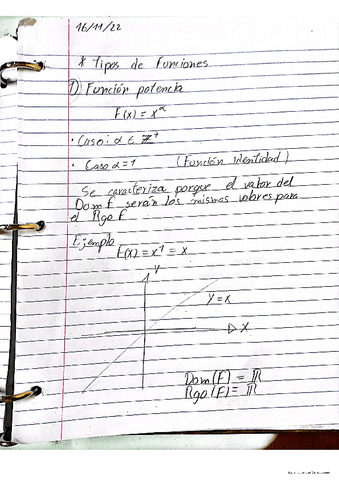 16/11/22
* Tipos de Funciones
1) Función potencia
F(x) = x^α
• Caso: α ∈ ℤ⁺
• Caso α = 1 (Función Identidad)
Se caracteriza porque el valor del
Dom F serán los mismos valores para
el Rgo F
Ejemplo
F(x) = x¹ = x
Y
y = x
X
Dom(F) = ℝ
Rgo(F) = ℝ